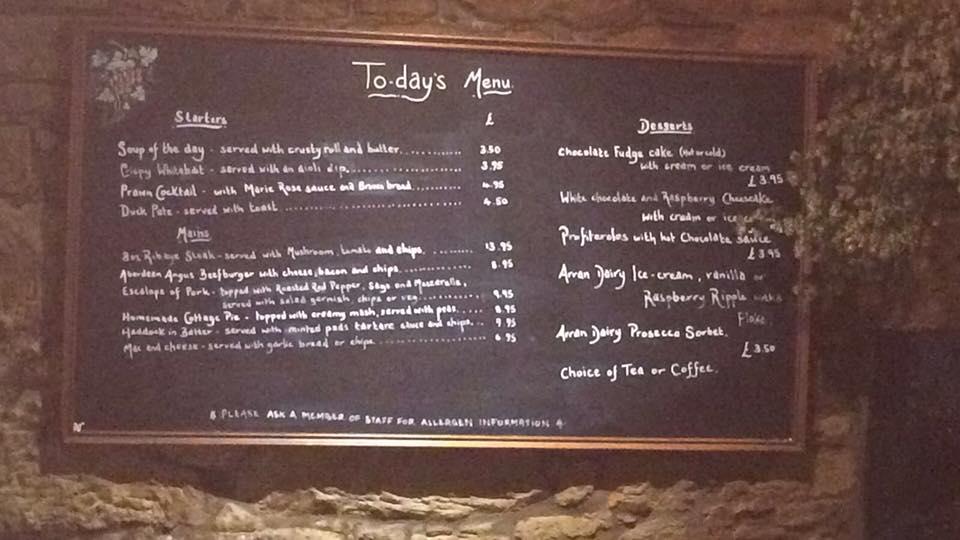 To-day's Menu
Starters
£
Soup of the day - served with crusty roll and butter.......... 3.50
Crispy Whitebait - served with an aioli dip.............. 3.95
Prawn Cocktail - with Marie Rose sauce and Brown bread.......... 4.95
Duck Pate - served with toast .................... 4.50
Mains
8oz Ribeye Steak - served with Mushroom, tomato and chips. ........ 13.95
Aberdeen Angus Beefburger with cheese, bacon and chips............... 8.95
Escalope of Pork - topped with Roasted Red Pepper, Sage and Mozzarella,
served with salad garnish, chips or veg.......... 9.95
Homemade Cottage Pie - topped with creamy mash, served with peas..... 8.95
Haddock in Batter - served with minted peas tartare sauce and chips.... 9.95
Mac and cheese - served with garlic bread or chips................ 6.95
Desserts
Chocolate Fudge cake (hot or cold)
with cream or ice cream
£3.95
White chocolate and Raspberry Cheesecake
with cream or ice
Profiteroles with hot Chocolate sauce
£3.95
Arran Dairy Ice-cream, vanilla or
Raspberry Ripple with a
Flake.
Arran Dairy Prosecco Sorbet.
£3.50
Choice of Tea or Coffee.
PLEASE ASK A MEMBER OF STAFF FOR ALLERGEN INFORMATION